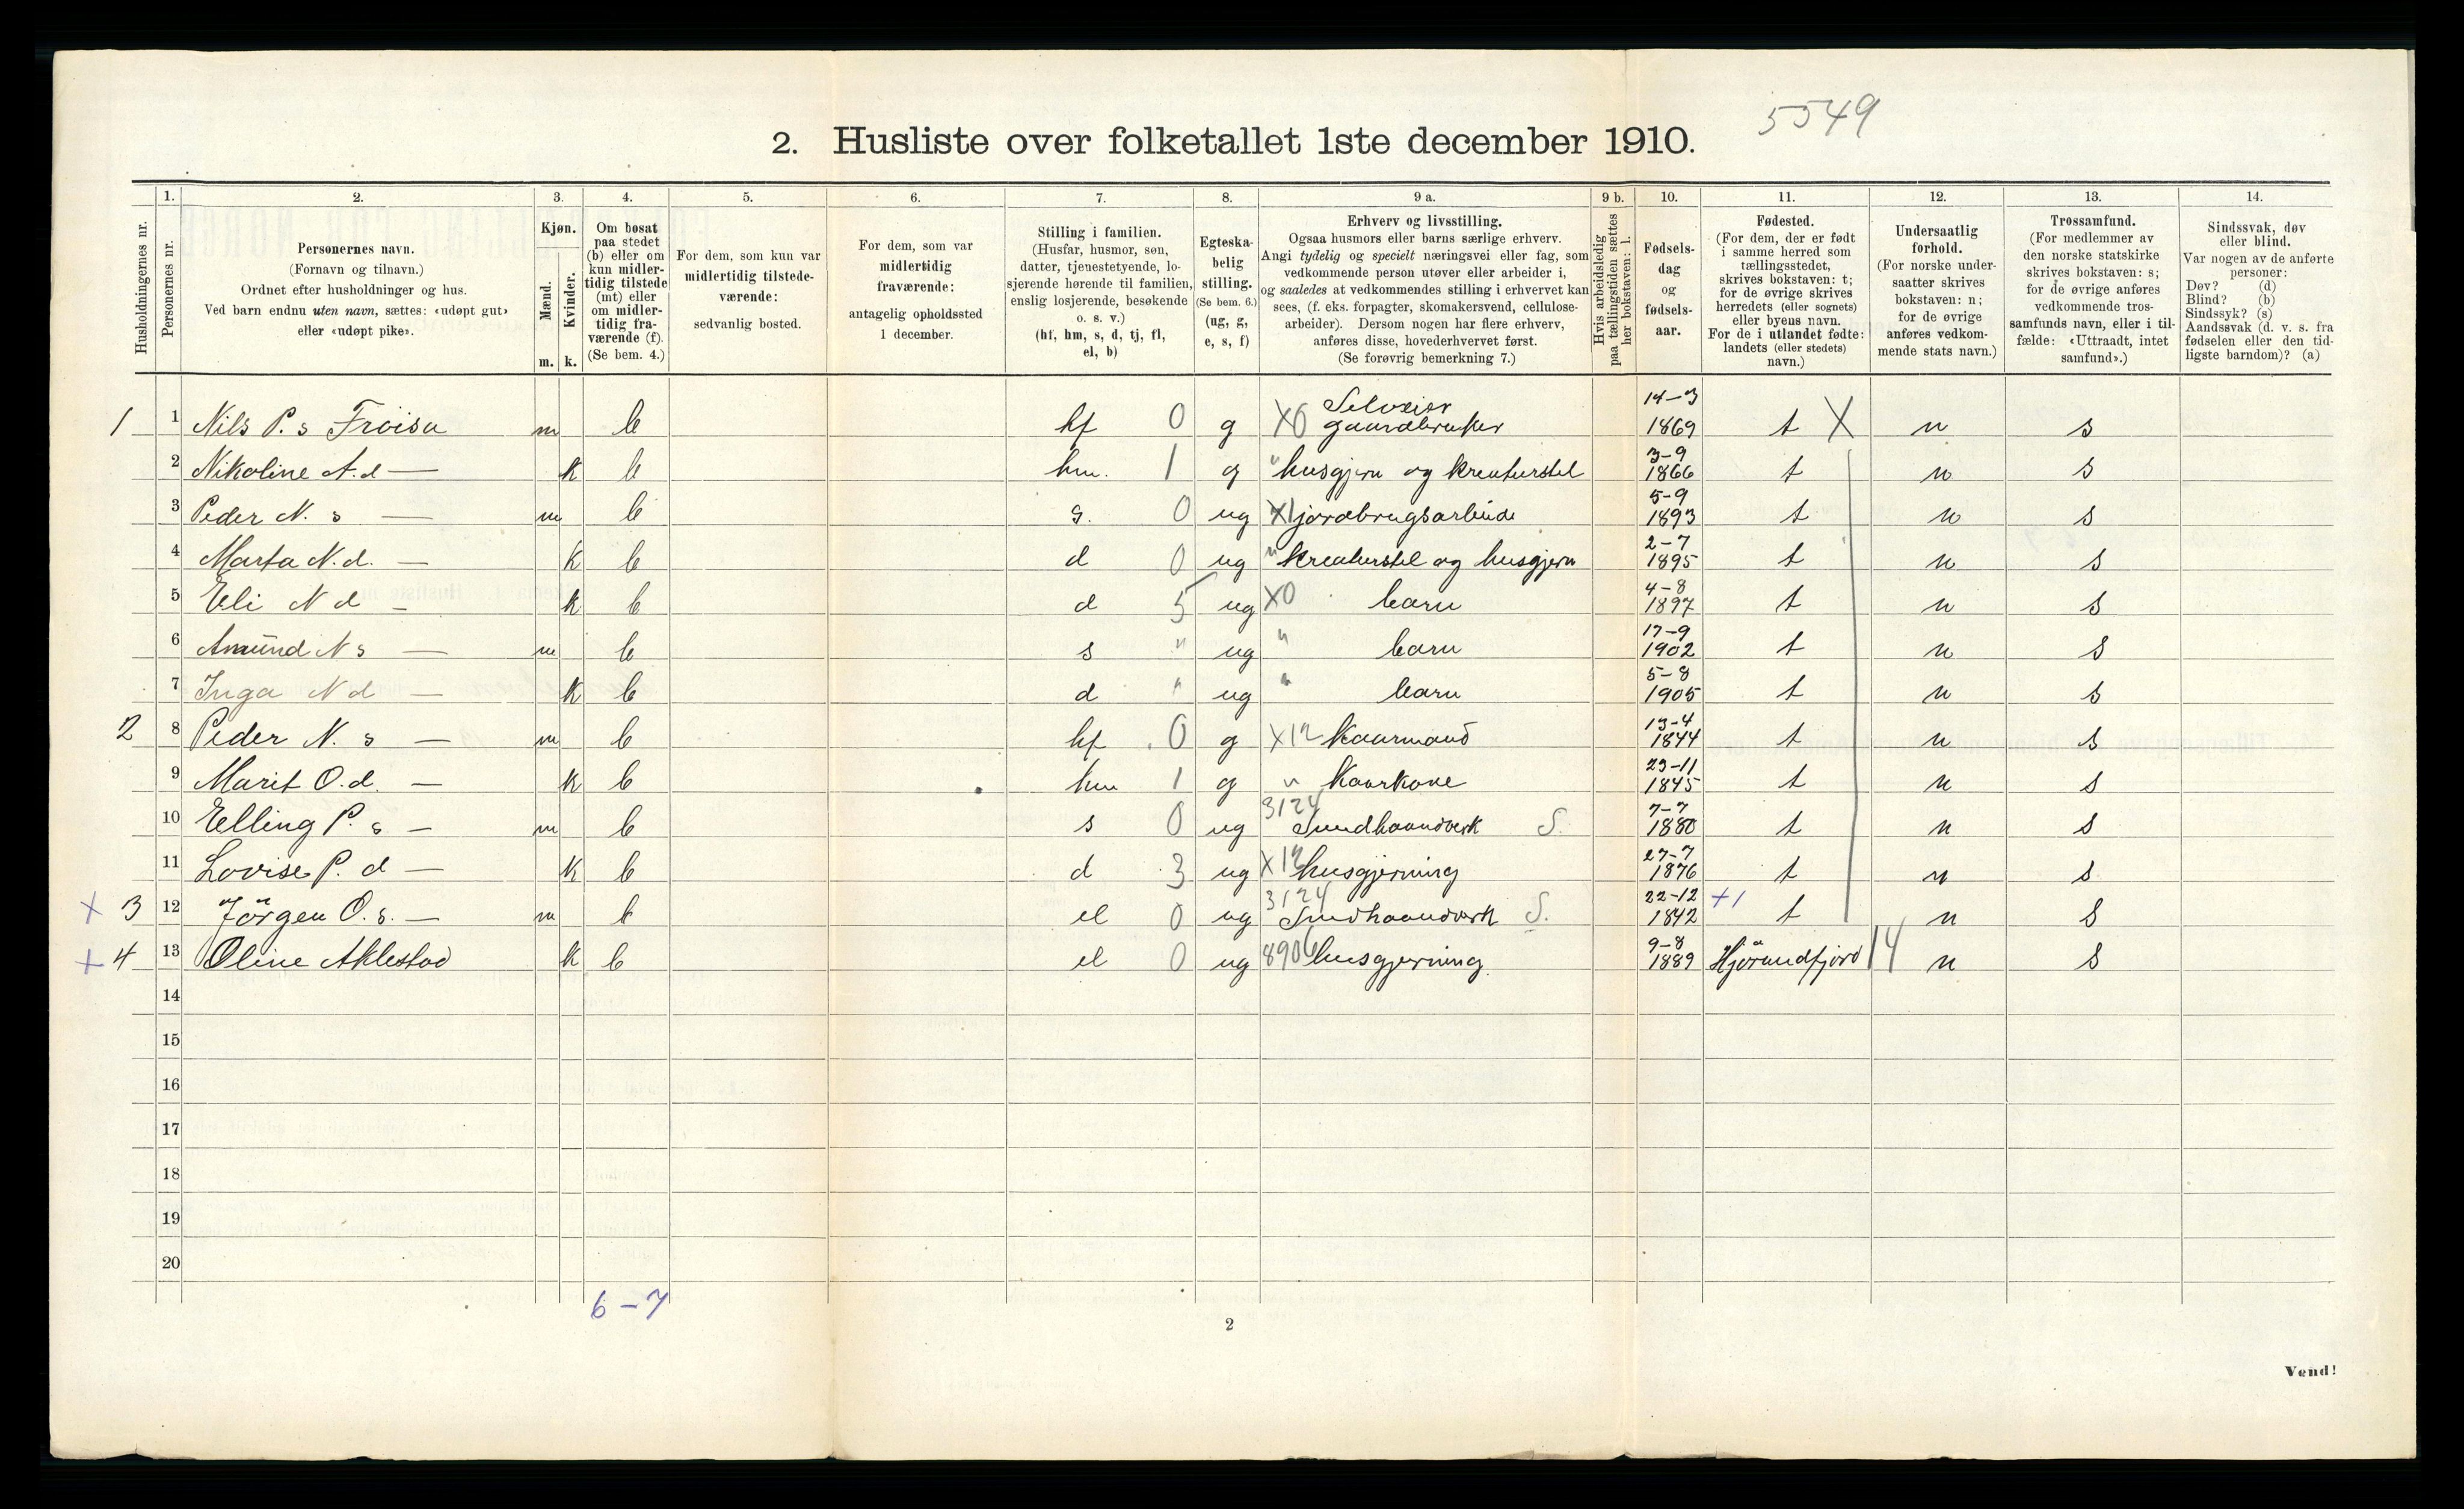 5549
2. Husliste over folketallet 1ste december 1910.
Husholdningernes nr.
1.
Personernes nr.
2.
Personernes navn.
(Fornavn og tilnavn.)
Ordnet efter husholdninger og hus.
Ved barn endnu uten navn, sættes: «udøpt gut»
eller «udøpt pike».
3.
Kjøn.
Mænd.
Kvinder.
m. k.
4.
Om bosat
paa stedet
(b) eller om
kun midler-
tidig tilstede
(mt) eller
om midler-
tidig fra-
værende (f).
(Se bem. 4.)
5.
For dem, som kun var
midlertidig tilstede-
værende:
sedvanlig bosted.
6.
For dem, som var
midlertidig
fraværende:
antagelig opholdssted
1 december.
7.
Stilling i familien.
(Husfar, husmor, søn,
datter, tjenestetyende, lo-
sjerende hørende til familien,
enslig losjerende, besøkende
o. s. v.)
(hf, hm, s, d, tj, fl,
el, b)
8.
Egteska-
belig
stilling.
(Se bem. 6.)
(ug, g,
e, s, f)
9 a.
Erhverv og livsstilling.
Ogsaa husmors eller barns særlige erhverv.
Angi tydelig og specielt næringsvei eller fag, som
vedkommende person utøver eller arbeider i,
og saaledes at vedkommendes stilling i erhvervet kan
sees, (f. eks. forpagter, skomakersvend, cellulose-
arbeider). Dersom nogen har flere erhverv,
anføres disse, hovederhvervet først.
(Se forøvrig bemerkning 7.)
9 b.
Hvis arbeidsledig
paa tællingstiden sættes
her bokstaven: l.
10.
Fødsels-
dag
og
fødsels-
aar.
11.
Fødested.
(For dem, der er født
i samme herred som
tællingsstedet,
skrives bokstaven: t;
for de øvrige skrives
herredets (eller sognets)
eller byens navn.
For de i utlandet fødte:
landets (eller stedets)
navn.)
12.
Undersaatlig
forhold.
(For norske under-
saatter skrives
bokstaven: n;
for de øvrige
anføres vedkom-
mende stats navn.)
13.
Trossamfund.
(For medlemmer av
den norske statskirke
skrives bokstaven: s;
for de øvrige anføres
vedkommende tros-
samfunds navn, eller i til-
fælde: «Uttraadt, intet
samfund».)
14.
Sindssvak, døv
eller blind.
Var nogen av de anførte
personer:
Døv? (d)
Blind? (b)
Sindssyk? (s)
Aandssvak (d. v. s. fra
fødselen eller den tid-
ligste barndom)? (a)
1 1 Nils P. s Fröisa m b hf 0 g X0 Selveier gaardbruker 14-3 1869 t X n s
2 Nikoline A. d — k b hm. 1 g " husgjern og kreaturstel 3-9 1866 t n s
3 Peder N. s — m b s. 0 ug X1 jordbrugsarbeide 5-9 1893 t n s
4 Marta N. d. — k b d 0 ug " kreaturstel og husgjern 2-7 1895 t n s
5 Eli N d — k b d 5 ug X0 barn 4-8 1897 t n s
6 Amund N s — m b s " ug " barn 17-9 1902 t n s
7 Inga N d — k b d " ug " barn 5-8 1905 t n s
2 8 Peder N. s — m b hf 0 g X12 Kaarmand 13-4 1844 t n s
9 Marit O. d. — k b hm 1 g " Kaarkone 23-11 1845 t n s
10 Elling P. s — m b s 0 ug 3124 Smedhaandverk S. 7-7 1880 t n s
11 Lovise P. d — k b d 3 ug X12 husgjerning 27-7 1876 t n s
X 3 12 Jörgen O. s. — m b el 0 ug 3124 Smedhaandverk S. 22-12 1842 +1 t n s
+ 4 13 Oline Aklestad k b el 0 ug 8906 husgjerning 9-8 1889 Hjörundfjord 14 n s
14
15
16
17
18
19
20
6-7
2
Vend!